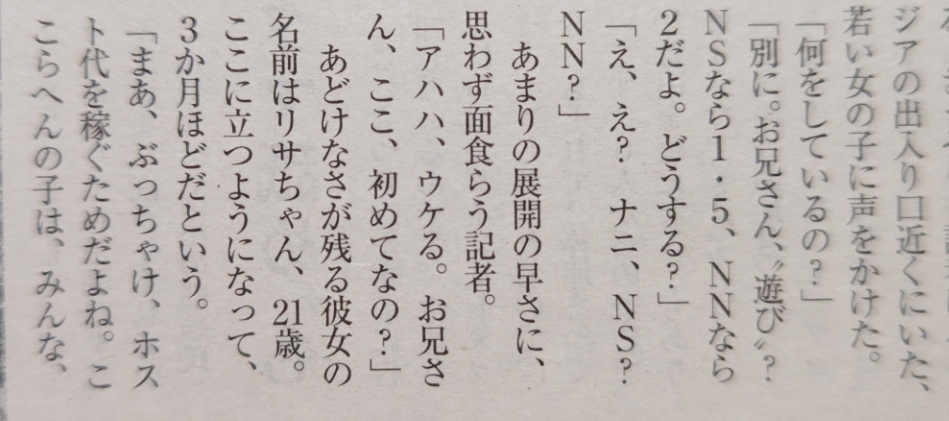 ジアの出入り口近くにいた、
若い女の子に声をかけた。
「何をしているの？」
「別に。お兄さん、〝遊び〟？
ＮＳなら１・５、ＮＮなら
２だよ。どうする？」
「え、え？　ナニ、ＮＳ？
ＮＮ？」
　あまりの展開の早さに、
思わず面食らう記者。
「アハハ、ウケる。お兄さ
ん、ここ、初めてなの？」
　あどけなさが残る彼女の
名前はリサちゃん、21歳。
ここに立つようになって、
３か月ほどだという。
「まあ、ぶっちゃけ、ホス
ト代を稼ぐためだよね。こ
こらへんの子は、みんな、